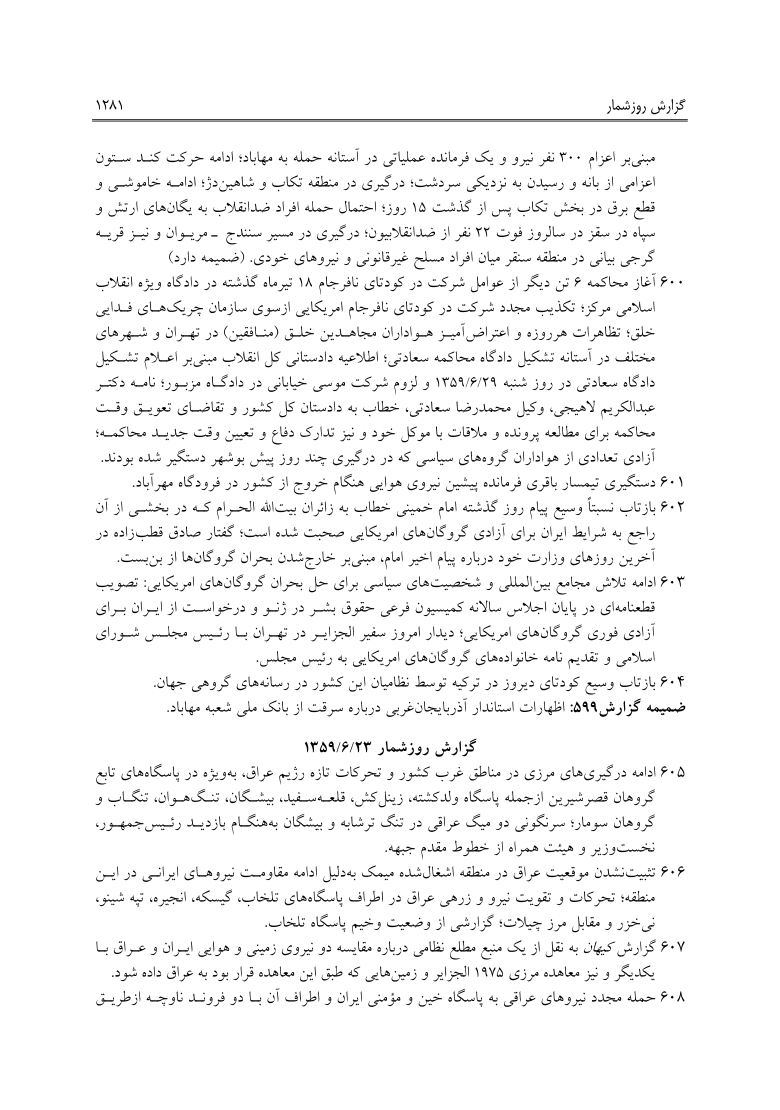 گزارش روزشمار ۱۲۸۱
مبنی‌بر اعزام ۳۰۰ نفر نیرو و یک فرمانده عملیاتی در آستانه حمله به مهاباد؛ ادامه حرکت کنـد سـتون
اعزامی از بانه و رسیدن به نزدیکی سردشت؛ درگیری در منطقه تکاب و شاهین‌دژ؛ ادامـه خاموشـی و
قطع برق در بخش تکاب پس از گذشت ۱۵ روز؛ احتمال حمله افراد ضدانقلاب به یگان‌های ارتش و
سپاه در سقز در سالروز فوت ۲۲ نفر از ضدانقلابیون؛ درگیری در مسیر سنندج ـ مریـوان و نیـز قریـه
گرجی بیانی در منطقه سنقر میان افراد مسلح غیرقانونی و نیروهای خودی. (ضمیمه دارد)
۶۰۰ آغاز محاکمه ۶ تن دیگر از عوامل شرکت در کودتای نافرجام ۱۸ تیرماه گذشته در دادگاه ویژه انقلاب
اسلامی مرکز؛ تکذیب مجدد شرکت در کودتای نافرجام امریکایی ازسوی سازمان چریک‌هـای فـدایی
خلق؛ تظاهرات هرروزه و اعتراض‌آمیـز هـواداران مجاهـدین خلـق (منـافقین) در تهـران و شـهرهای
مختلف در آستانه تشکیل دادگاه محاکمه سعادتی؛ اطلاعیه دادستانی کل انقلاب مبنی‌بر اعـلام تشـکیل
دادگاه سعادتی در روز شنبه ۱۳۵۹/۶/۲۹ و لزوم شرکت موسی خیابانی در دادگـاه مزبـور؛ نامـه دکتـر
عبدالکریم لاهیجی، وکیل محمدرضا سعادتی، خطاب به دادستان کل کشور و تقاضـای تعویـق وقـت
محاکمه برای مطالعه پرونده و ملاقات با موکل خود و نیز تدارک دفاع و تعیین وقت جدیـد محاکمـه؛
آزادی تعدادی از هواداران گروه‌های سیاسی که در درگیری چند روز پیش بوشهر دستگیر شده بودند.
۶۰۱ دستگیری تیمسار باقری فرمانده پیشین نیروی هوایی هنگام خروج از کشور در فرودگاه مهرآباد.
۶۰۲ بازتاب نسبتاً وسیع پیام روز گذشته امام خمینی خطاب به زائران بیت‌الله الحـرام کـه در بخشـی از آن
راجع به شرایط ایران برای آزادی گروگان‌های امریکایی صحبت شده است؛ گفتار صادق قطب‌زاده در
آخرین روزهای وزارت خود درباره پیام اخیر امام، مبنی‌بر خارج‌شدن بحران گروگان‌ها از بن‌بست.
۶۰۳ ادامه تلاش مجامع بین‌المللی و شخصیت‌های سیاسی برای حل بحران گروگان‌های امریکایی: تصویب
قطعنامه‌ای در پایان اجلاس سالانه کمیسیون فرعی حقوق بشـر در ژنـو و درخواسـت از ایـران بـرای
آزادی فوری گروگان‌های امریکایی؛ دیدار امروز سفیر الجزایـر در تهـران بـا رئـیس مجلـس شـورای
اسلامی و تقدیم نامه خانواده‌های گروگان‌های امریکایی به رئیس مجلس.
۶۰۴ بازتاب وسیع کودتای دیروز در ترکیه توسط نظامیان این کشور در رسانه‌های گروهی جهان.
ضمیمه گزارش۵۹۹: اظهارات استاندار آذربایجان‌غربی درباره سرقت از بانک ملی شعبه مهاباد.
گزارش روزشمار ۱۳۵۹/۶/۲۳
۶۰۵ ادامه درگیری‌های مرزی در مناطق غرب کشور و تحرکات تازه رژیم عراق، به‌ویژه در پاسگاه‌های تابع
گروهان قصرشیرین ازجمله پاسگاه ولدکشته، زینل‌کش، قلعـه‌سـفید، بیشـگان، تنـگ‌هـوان، تنگـاب و
گروهان سومار؛ سرنگونی دو میگ عراقی در تنگ ترشابه و بیشگان به‌هنگـام بازدیـد رئـیس‌جمهـور،
نخست‌وزیر و هیئت همراه از خطوط مقدم جبهه.
۶۰۶ تثبیت‌نشدن موقعیت عراق در منطقه اشغال‌شده میمک به‌دلیل ادامه مقاومـت نیروهـای ایرانـی در ایـن
منطقه؛ تحرکات و تقویت نیرو و زرهی عراق در اطراف پاسگاه‌های تلخاب، گیسکه، انجیره، تپه شینو،
نی‌خزر و مقابل مرز چیلات؛ گزارشی از وضعیت وخیم پاسگاه تلخاب.
۶۰۷ گزارش کیهان به نقل از یک منبع مطلع نظامی درباره مقایسه دو نیروی زمینی و هوایی ایـران و عـراق بـا
یکدیگر و نیز معاهده مرزی ۱۹۷۵ الجزایر و زمین‌هایی که طبق این معاهده قرار بود به عراق داده شود.
۶۰۸ حمله مجدد نیروهای عراقی به پاسگاه خین و مؤمنی ایران و اطراف آن بـا دو فرونـد ناوچـه ازطریـق